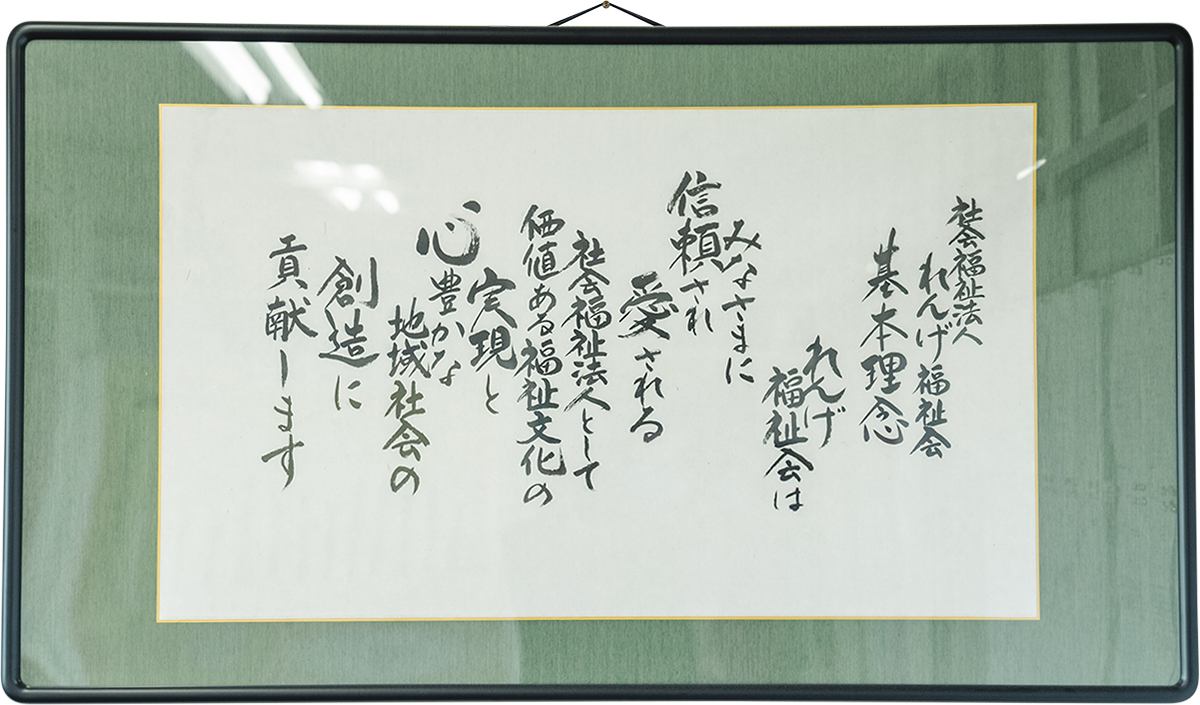 社会福祉法人
れんげ福祉会
基本理念
れんげ
福祉会は
みなさまに
信頼され
愛される
社会福祉法人として
価値ある福祉文化の
実現と
心豊かな
地域社会の
創造に
貢献します